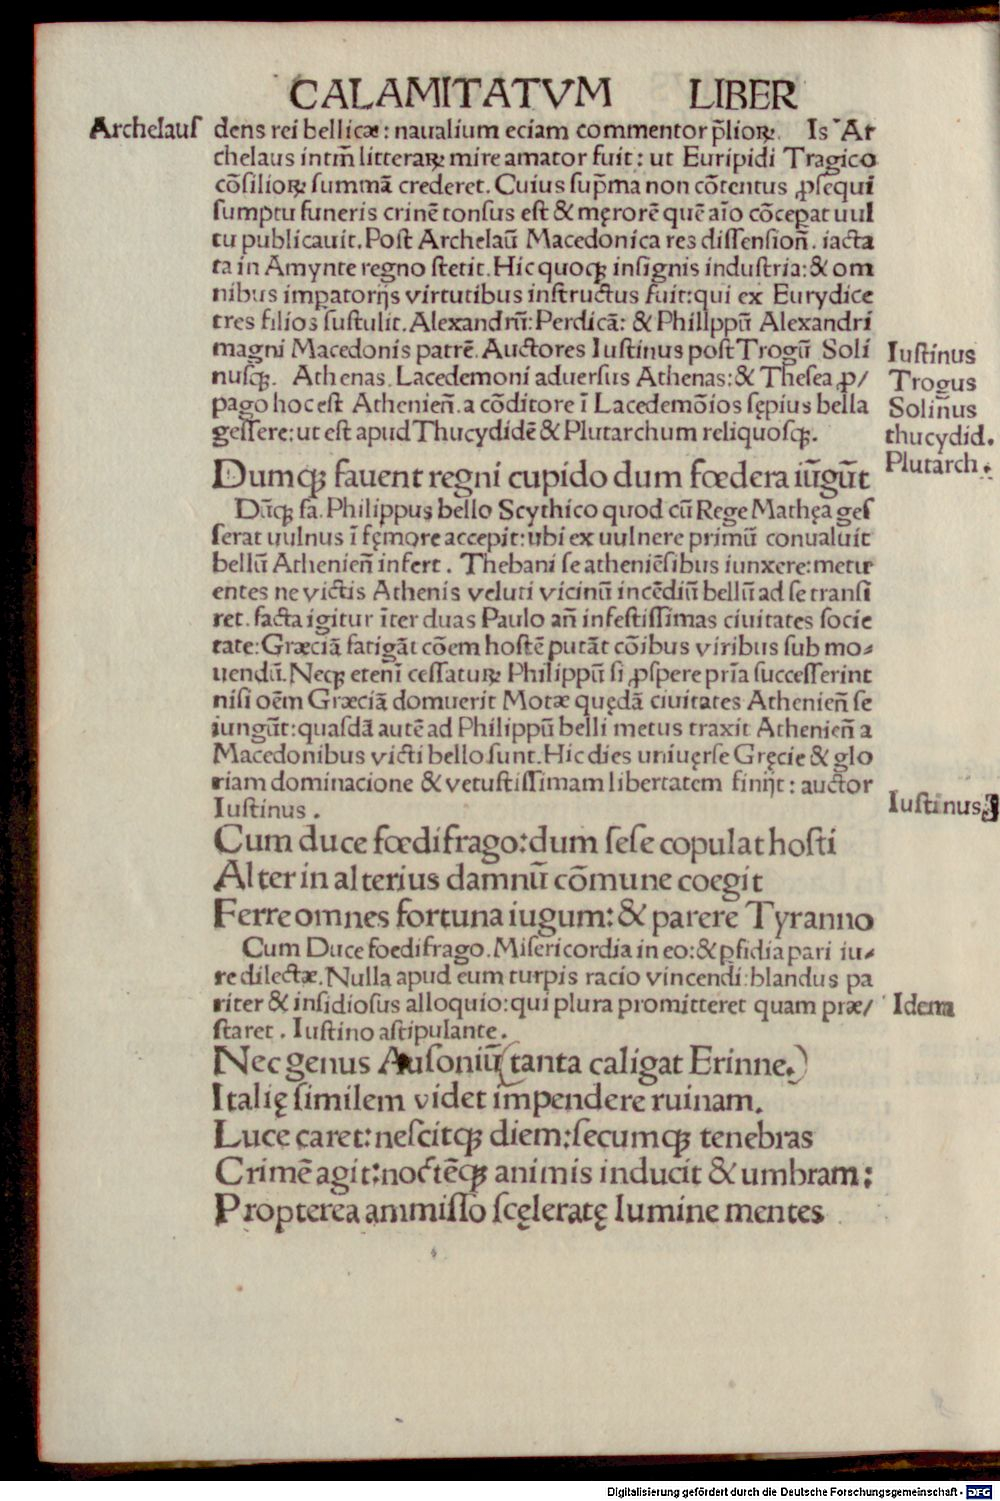 CALAMITATVM LIBER
Archelauſ
dens rei bellicæ: naualium eciam commentor p̄lioꝝ. Is Ar
chelaus intm̄ litteraꝝ mire amator fuit: ut Euripidi Tragico
cōſilioꝝ ſummā crederet. Cuius ſup̄ma non cōtentus ꝓſequi
ſumptu funeris crinē tonſus eſt & męrorē quē aīo cōceꝑat uul
tu publicauit. Poſt Archelaū Macedonica res diſſenſioñ. iacta
ta in Amynte regno ſtetit. Hic quoqꝫ inſignis induſtria: & om
nibus imꝑatorijs virtutibus inſtructus fuit: qui ex Eurydice
tres filios ſuſtulit. Alexandrū: Perdicā: & Philippū Alexandri
magni Macedonis patrē. Auctores Iuſtinus poſt Trogū Soli
nuſqꝫ. Athenas. Lacedemoni aduerſus Athenas: & Theſea ꝓ/
pago hoc eſt Athenieñ. a cōditore ī Lacedemōios ſępius bella
geſſere: ut eſt apud Thucydidē & Plutarchum reliquoſqꝫ.
Iuſtinus
Trogus
Solinus
thucydid.
Plutarch.
Dumqꝫ fauent regni cupido dum fœdera iūgūt
Dūqꝫ fa. Philippus bello Scythico quod cū Rege Mathęa geſ
ſerat uulnus ī fęmore accepit: ubi ex uulnere primū conualuit
bellū Athenieñ infert. Thebani ſe atheniēſibus iunxere: metu
entes ne victis Athenis veluti vicinū incēdiū bellū ad ſe tranſi
ret. facta igitur īter duas Paulo añ infeſtiſſimas ciuitates ſocie
tate: Græciā fatigāt cōem hoſtē putāt cōibus viribus ſub mo⸗
uendū. Neqꝫ etenī ceſſatuꝝ Philippū ſi ꝓſpere pr̄ia ſucceſſerint
niſi oēm Græciā domuerit Motæ quędā ciuitates Athenieñ ſe
iungūt: quaſdā autē ad Philippū belli metus traxit Athenieñ a
Macedonibus victi bello ſunt. Hic dies uniuęrſe Gręcie & glo
riam dominacione & vetuſtiſſimam libertatem finijt: auctor
Iuſtinus.
Iuſtinus
Cum duce fœdifrago: dum ſeſe copulat hoſti
Alter in alterius damnū cōmune coegit
Ferre omnes fortuna iugum: & parere Tyranno
Cum Duce foedifrago. Miſericordia in eo: & ꝑfidia pari iu⸗
re dilectæ. Nulla apud eum turpis racio vincendi: blandus pa
riter & inſidioſus alloquio: qui plura promitteret quam præ/
ſtaret. Iuſtino aſtipulante.
Idem
Nec genus Auſoniū (tanta caligat Erinne.)
Italię ſimilem videt impendere ruinam.
Luce caret: neſcitqꝫ diem: ſecumqꝫ tenebras
Crimē agit: noctēqꝫ animis inducit & umbram:
Propterea ammiſſo ſcęleratę lumine mentes
Digitalisierung gefördert durch die Deutsche Forschungsgemeinschaft - DFG